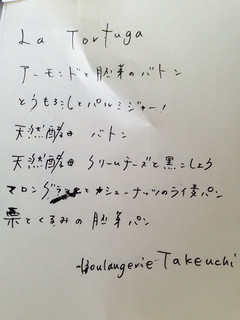 La Tortuga
アーモンドと胚芽のバトン
とうもろこしとパルミジャーノ
天然酵母 バトン
天然酵母 クリームチーズと黒こしょう
マロングラッセとカシューナッツのライ麦パン
栗とくるみの胚芽パン
-Boulangerie Takeuchi